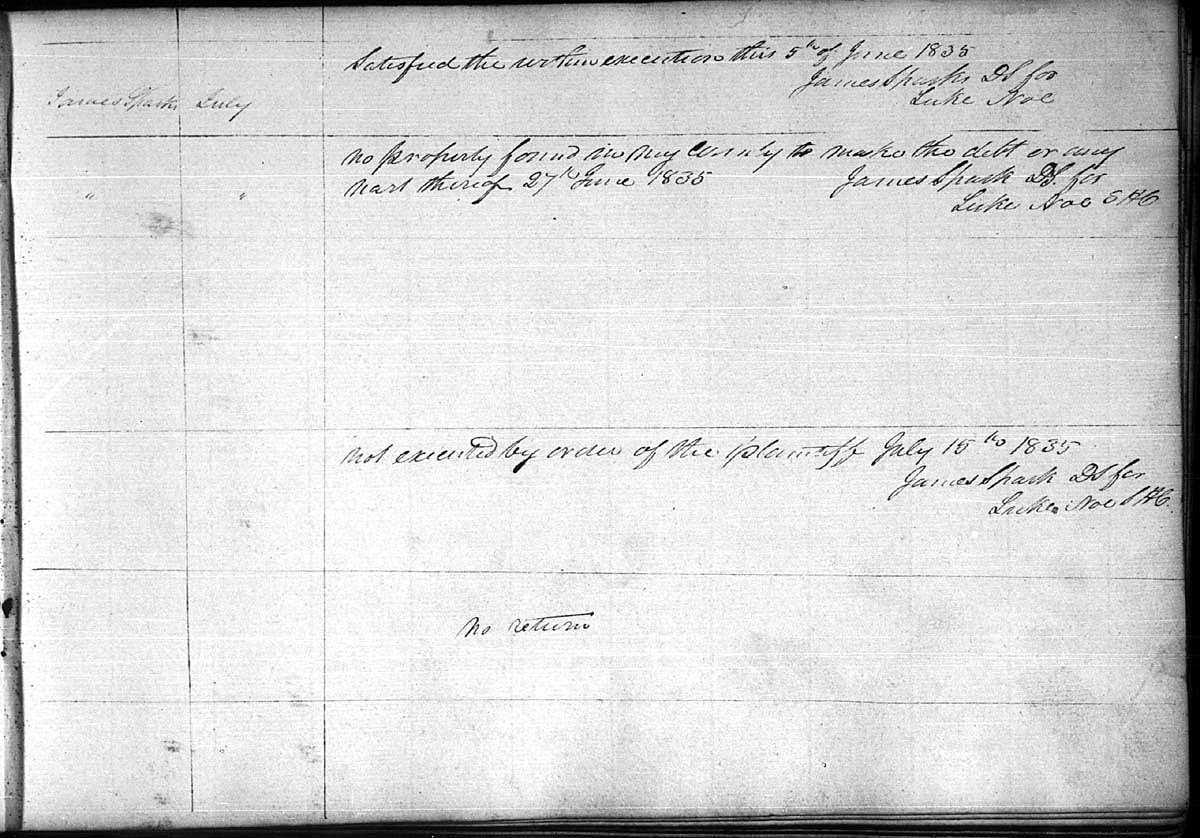 Satisfied the within execution this 5th of June 1835
James Sparks DS for
Luke Noe
James Sparks July
no property found in my County to make the debt or any
part thereof 27th June 1835 James Spark DS. for
" " Luke Noe SHC
not executed by order of the plaintiff July 15th 1835
James Spark DS for
Luke Noe SHC.
no return